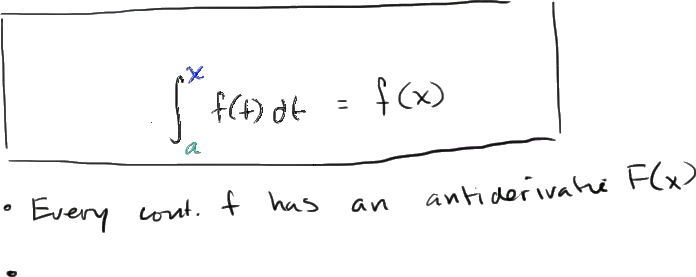 ∫_a^x f(t) dt = f(x)
• Every cont. f has an antiderivative F(x)
•